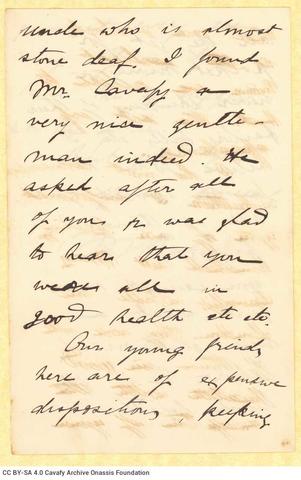 uncle who is almost
stone deaf. I found
Mr. Cavafy a
very nice gentle-
man indeed. He
asked after all
of you & was glad
to hear that you
were all in
good health etc etc.
Our young friends
here are of expensive
dispositions, keeping
CC BY-SA 4.0 Cavafy Archive Onassis Foundation